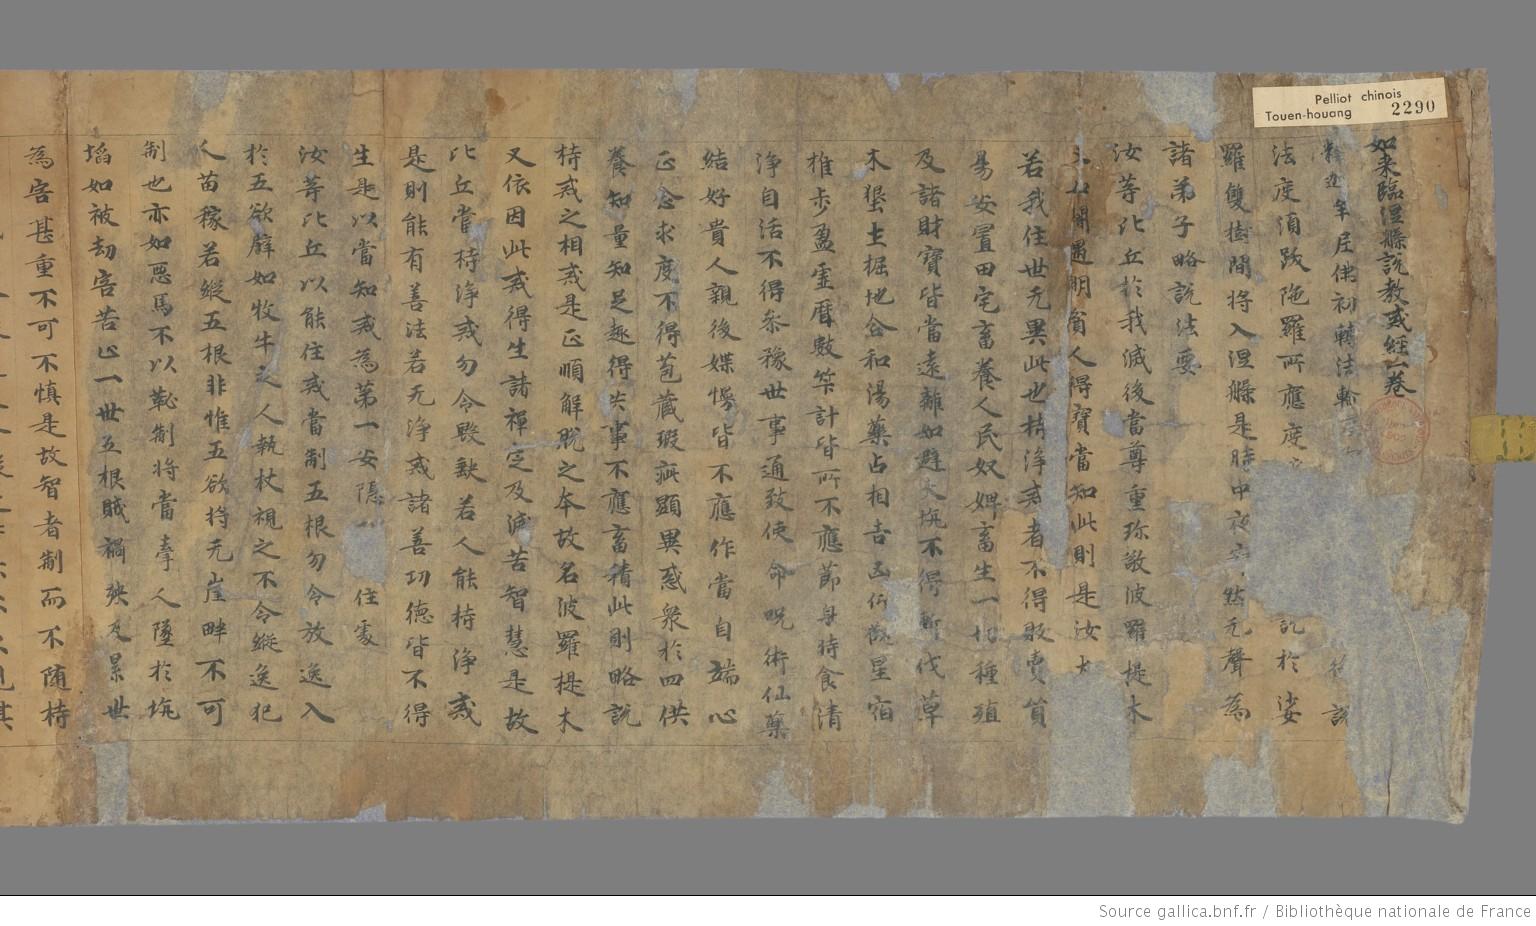 Pelliot chinois
Touen-houang 2290
如来臨涅槃說教戒經一卷
釋迦牟尼佛初轉法輪度 後 說
法度須跋陁羅所應度 訖於娑
羅雙樹間將入涅槃是時中夜寂然无聲為
諸弟子略說法要
汝等比丘於我滅後當尊重珎敬波羅提木
叉如闇遇明貧人得寶當知此則是汝大
若我住世无異此也持淨戒者不得販賣貿
易安置田宅畜養人民奴婢畜生一切種殖
及諸財寶皆當遠離如避火坑不得斬伐草
木墾土掘地合和湯藥占相吉凶仰觀星宿
推步盈虛曆數筭計皆所不應節身時食清
淨自活不得叅豫世事通致使命呪術仙藥
結好貴人親後媟慢皆不應作當自端心
正念求度不得苞藏瑕疵顯異惑衆於四供
養知量知足趣得供事不應畜積此則略說
持戒之相戒是正順解脫之本故名波羅提木
叉依因此戒得生諸禪定及滅苦智慧是故
比丘當持淨戒勿令毀缺若人能持淨戒
是則能有善法若无淨戒諸善功德皆不得
生是以當知戒為第一安隱 住處
汝等比丘以能住戒當制五根勿令放逸入
於五欲辟如牧牛之人執杖視之不令縱逸犯
人苗稼若縱五根非惟五欲將无崖畔不可
制也亦如惡馬不以轡制將當牽人墜於坑
埳如被劫害苦止一世五根賊禍殃及累世
為害甚重不可不慎是故智者制而不隨持
Source gallica.bnf.fr / Bibliothèque nationale de France